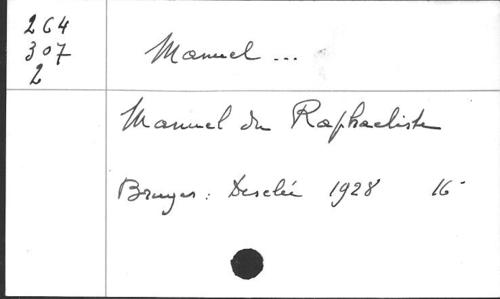 264
307
2
Manuel ...
Manuel du Raphaeliste
Bruges : Desclée 1928 16°